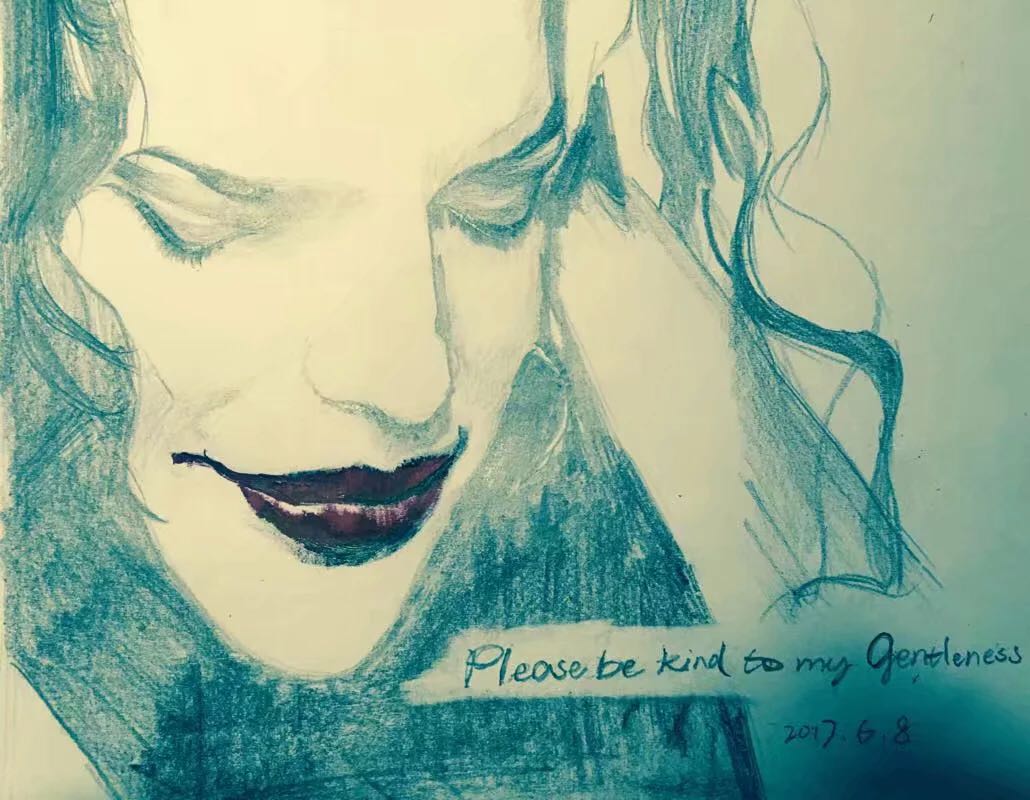 Please be kind to my Gentleness
2017.6.8